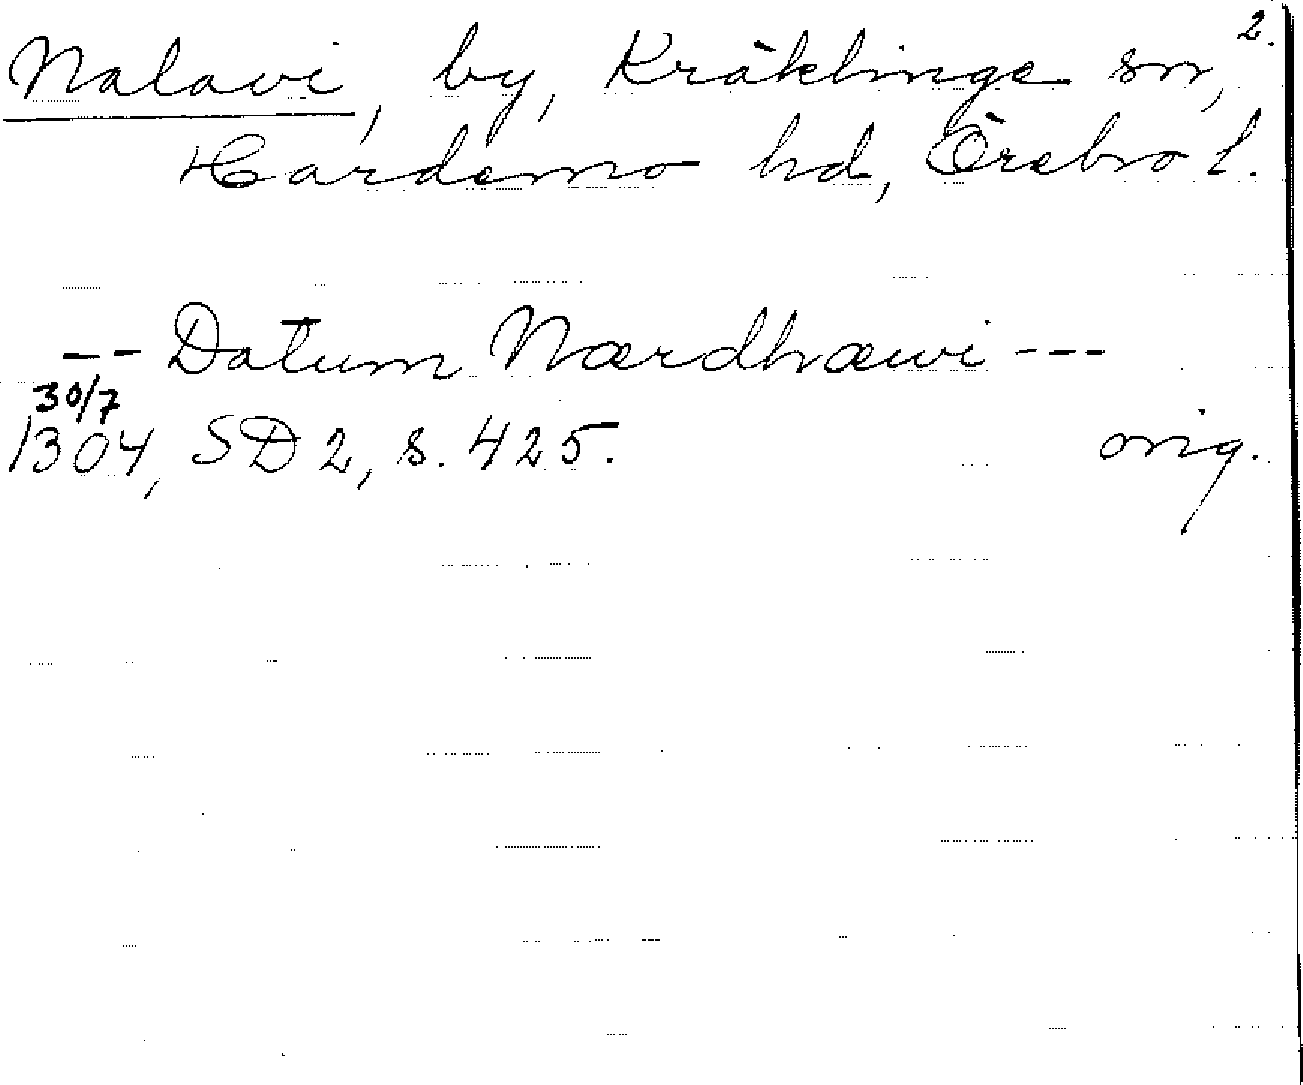 2.
Nalavi, by, Kräklinge sn,
Hardemo hd, Örebro l.
-- Datum Nærdhæwi ---
30/7
1304, SD 2, s. 425. orig.